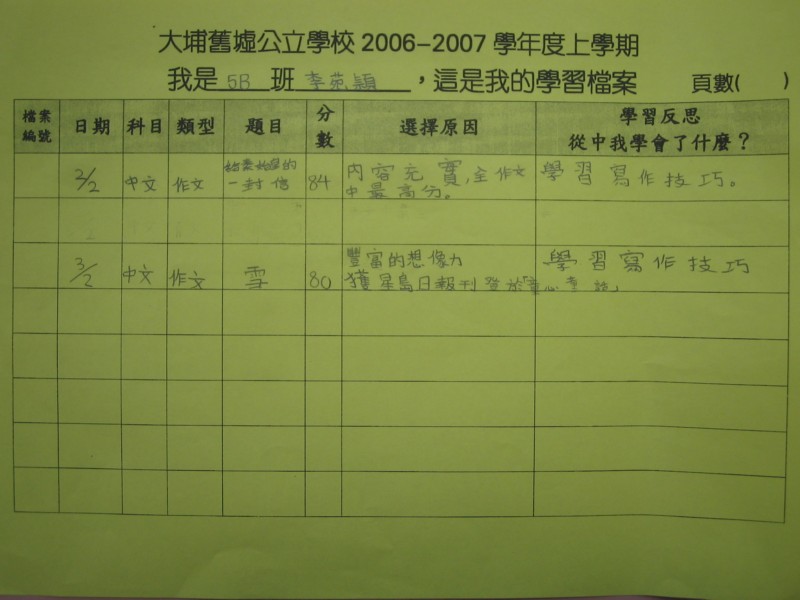 大埔舊墟公立學校 2006-2007 學年度上學期
我是 5B 班 李苑穎 ，這是我的學習檔案 頁數( )
檔案編號 日期 科目 類型 題目 分數 選擇原因 學習反思 從中我學會了什麼？
3/2 中文 作文 的一封信 84 內容充實，全作文中最高分。 學習寫作技巧。
3/2 中文 作文 雪 80 豐富的想像力 獲星島日報刊登於「童心童話」 學習寫作技巧